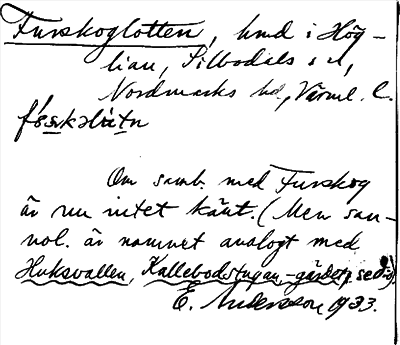 Furskoglotten, hmd i Hög-
lian, Silbodals sn,
Nordmarks hd, Värml. l.
Om samb. med Furskog
är nu intet känt. (Men san-
nol. är namnet analogt med
Huksvallen, Kallebodstugan, -gärdet,
E. Andersson 1933.